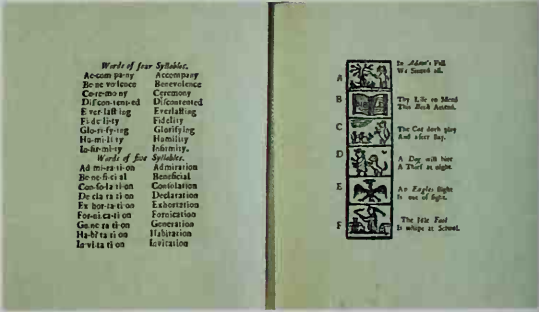 Words of four Syllables.
Ac-com pa-ny Accompany
Be-ne vo lence Benevolence
Ce-re-mo ny Ceremony
Diſ-con-tent-ed Diſcontented
E ver-laſt ing Everlaſting
Fi-de li-ty Fidelity
Glo-ri-fy-ing Glorifying
Hu-mi-li ty Humility
In-fir-mi-ty Infirmity.
Words of five Syllables.
Ad mi-ra-ti-on Admiration
Be-ne-fi-ci al Beneficial
Con-ſo-la ti-on Conſolation
De cla ra ti-on Declaration
Ex hor-ta-ti-on Exhortation
For-ni-ca-ti-on Fornication
Ge-ne ra ti-on Generation
Ha-bi-ta ti on Habitation
In-vi-ta ti on Invitation
A
In Adam's Fall
We Sinned all.
B
Thy Life to Mend
This Book Attend.
C
The Cat doth play
And after ſlay.
D
A Dog will bite
A Thief at night.
E
An Eagles flight
Is out of ſight.
F
The Idle Fool
Is whipt at School.